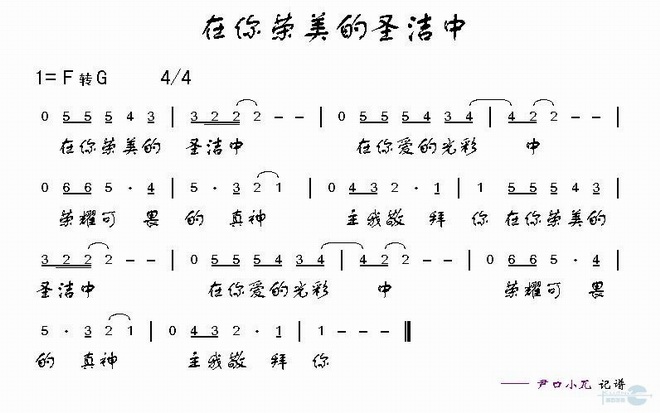 在你荣美的圣洁中
1= F 转 G 4/4
0 5 5 5 4 3 | 3 2 2 2 - - | 0 5 5 5 4 3 4 | 4 2 2 - - |
在你荣美的 圣洁中 在你爱的光彩 中
0 6 6 5 · 4 | 5 · 3 2 1 | 0 4 3 2 · 1 | 1 5 5 5 4 3 |
荣耀可 畏 的 真神 主我敬 拜 你 在你荣美的
3 2 2 2 - - | 0 5 5 5 4 3 4 | 4 2 2 - - | 0 6 6 5 · 4 |
圣洁中 在你爱的光彩 中 荣耀可 畏
5 · 3 2 1 | 0 4 3 2 · 1 | 1 - - - ‖
的 真神 主我敬 拜 你
—— 尹口小兀 记谱